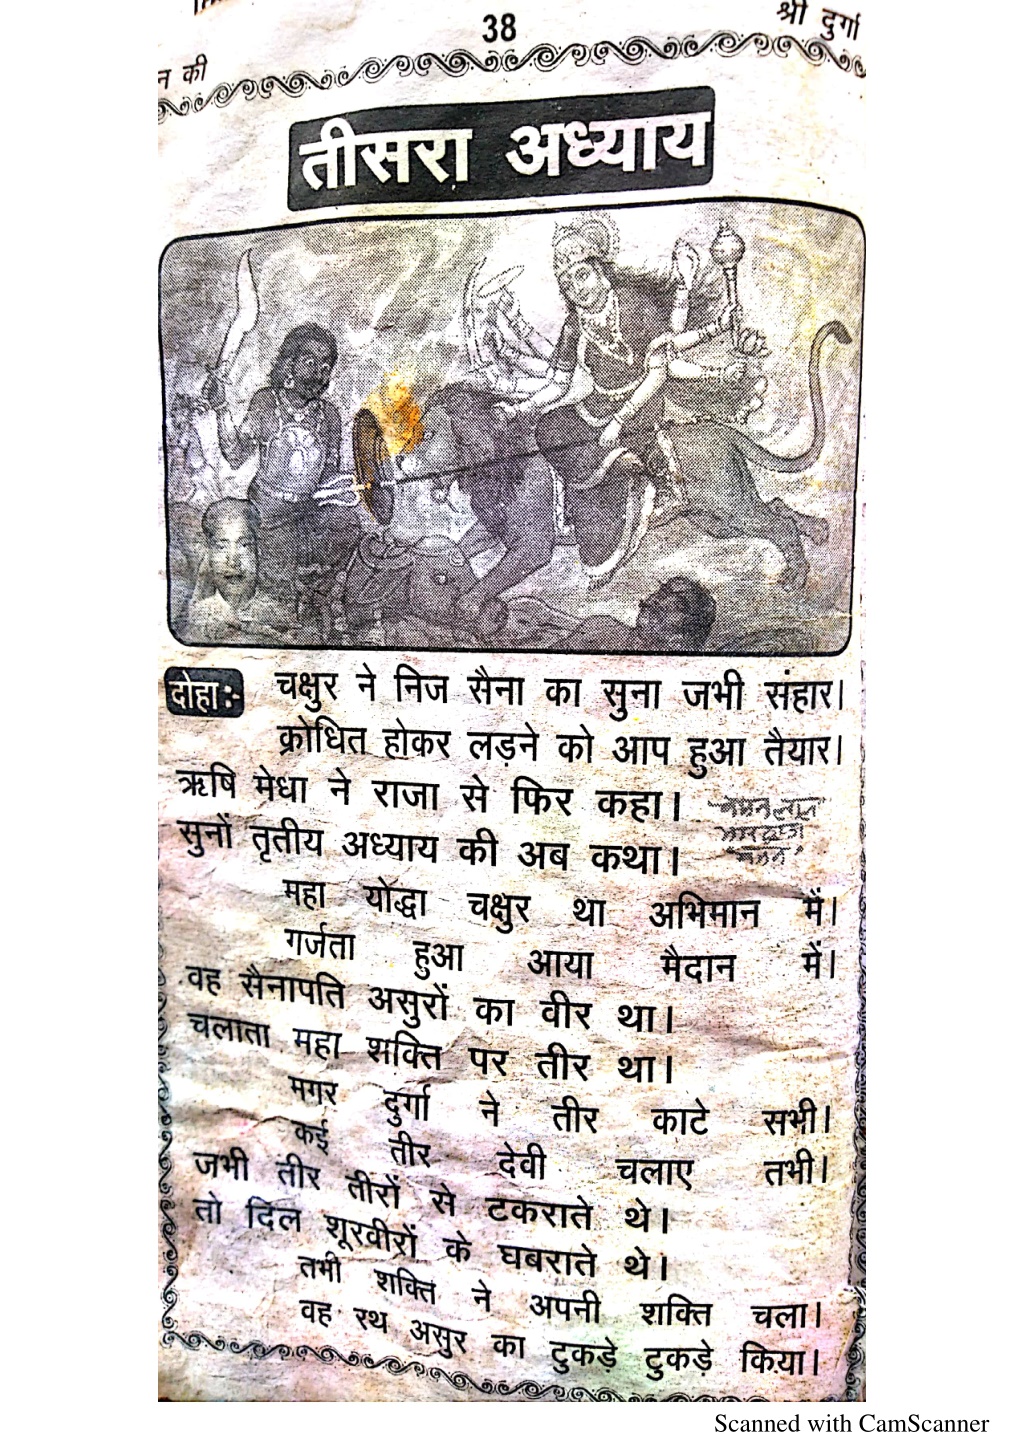 38
श्री दुर्गा
न की
तीसरा अध्याय
दोहा :- चक्षुर ने निज सैना का सुना जभी संहार।
क्रोधित होकर लड़ने को आप हुआ तैयार।
ऋषि मेधा ने राजा से फिर कहा।
सुनों तृतीय अध्याय की अब कथा।
महा योद्धा चक्षुर था अभिमान में।
गर्जता हुआ आया मैदान में।
वह सैनापति असुरों का वीर था।
चलाता महा शक्ति पर तीर था।
मगर दुर्गा ने तीर काटे सभी।
कई तीर देवी चलाए तभी।
जभी तीर तीरों से टकराते थे।
तो दिल शूरवीरों के घबराते थे।
तभी शक्ति ने अपनी शक्ति चला।
वह रथ असुर का टुकड़े टुकड़े किया।
Scanned with CamScanner